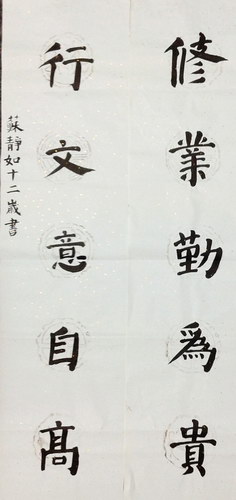 修業勤為貴
行文意自高
蘇靜如十二歲書